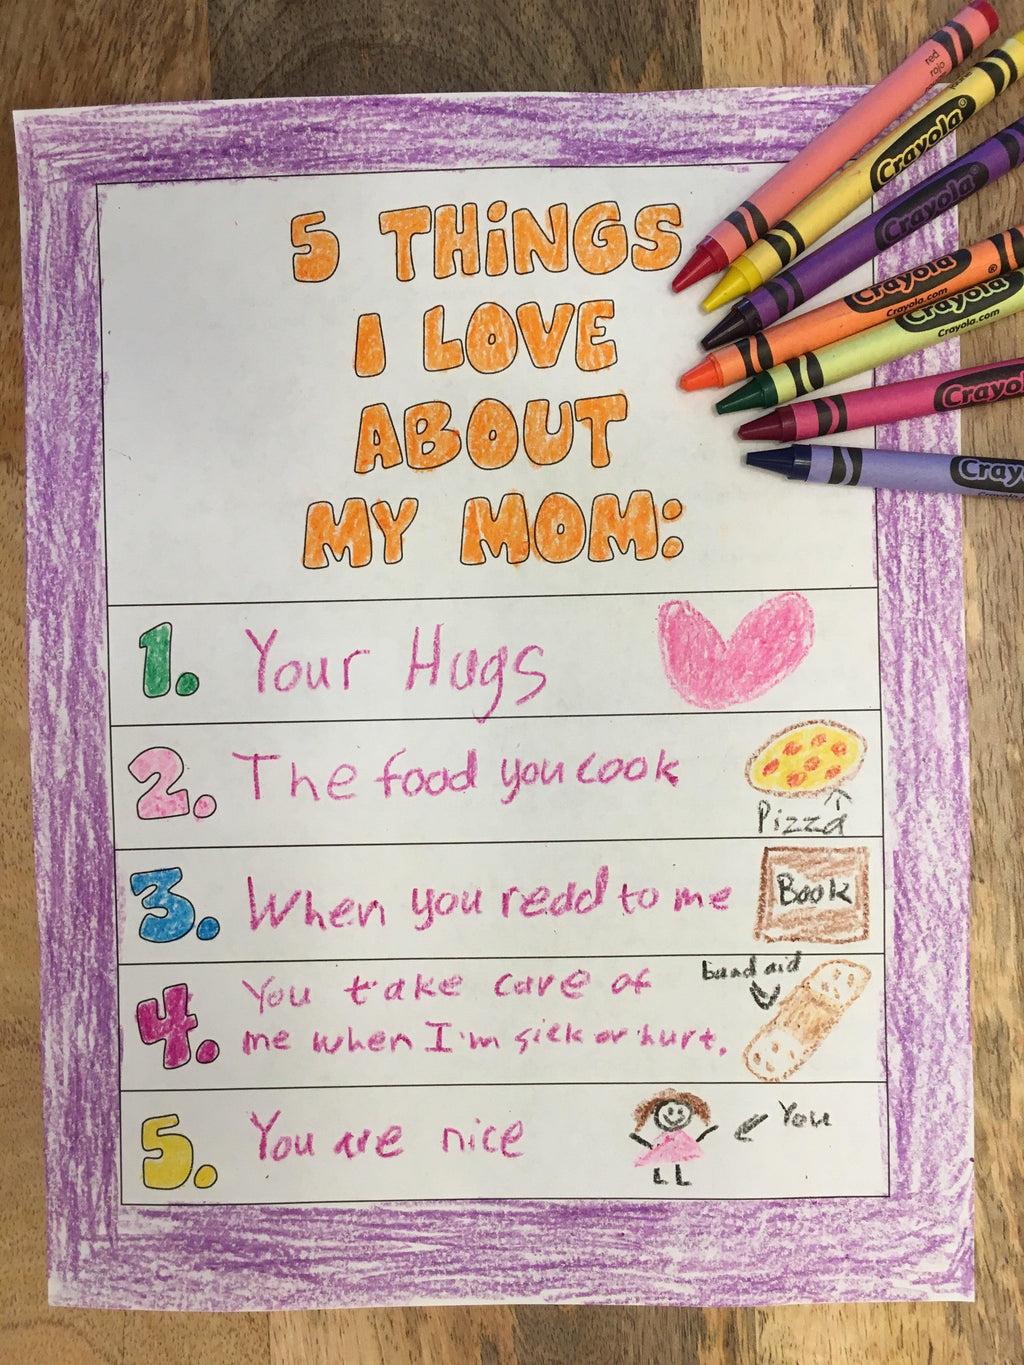 5 THiNGS
I LOVE
ABOUT
MY MOM:
1. Your Hugs
2. The food you cook
Pizza
3. When you redd to me
Book
4. You take care of
me when I'm sick or hurt.
band aid
5. You are nice
You
red
rojo
Crayola®
Crayola®
Crayola®
Crayola.com
Crayola
Crayola.com
Crayo
Cray